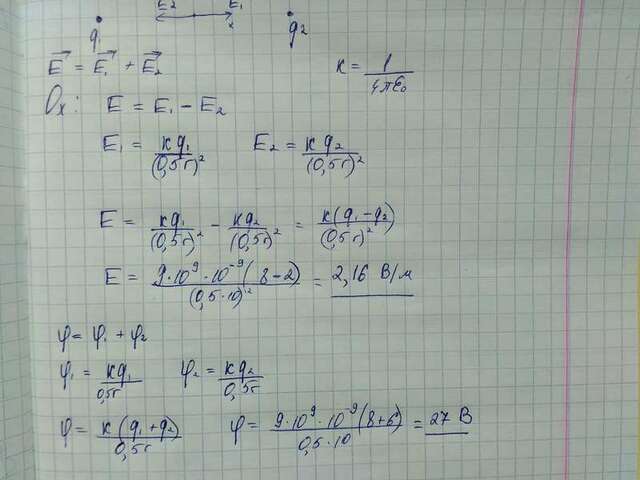 E₂ E₁
q₁ x q₂
E⃗ = E⃗₁ + E⃗₂ K = 1/(4πε₀)
Ox: E = E₁ - E₂
E₁ = Kq₁/(0,5r)² E₂ = Kq₂/(0,5r)²
E = Kq₁/(0,5r)² - Kq₂/(0,5r)² = K(q₁-q₂)/(0,5r)²
E = 9·10⁹·10⁻⁹(8-2)/(0,5·10)² = 2,16 В/м
φ = φ₁ + φ₂
φ₁ = Kq₁/0,5r φ₂ = Kq₂/0,5r
φ = K(q₁+q₂)/0,5r φ = 9·10⁹·10⁻⁹(8+6)/0,5·10 = 27 В